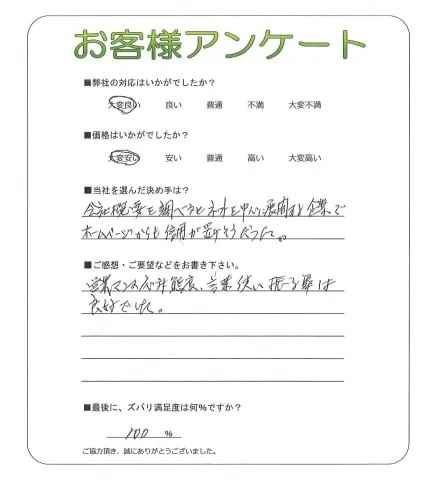 お客様アンケート
■弊社の対応はいかがでしたか？
大変良い 良い 普通 不満 大変不満
■価格はいかがでしたか？
大変安い 安い 普通 高い 大変高い
■当社を選んだ決め手は？
会社概要を調べるとネットを中心に展開する企業で
ホームページからも信用が置けそうだった。
■ご感想・ご要望などをお書き下さい。
営業マンの態度、言葉使い 振る舞は
良好でした。
■最後に、ズバリ満足度は何％ですか？
100 ％
ご協力頂き、誠にありがとうございました。